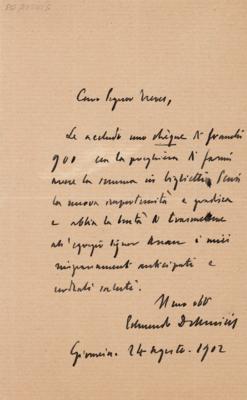 Caro Signor Treves,
Le accludo uno chèque di franchi
900 con la preghiera di farmi
avere la somma in biglietti. Scusi
la nuova importunità e gradisca
e abbia la bontà di trasmettere
all'egregio signor
ringraziamenti anticipati e
cordiali saluti.
Edmondo De Amicis
24 agosto. 1902